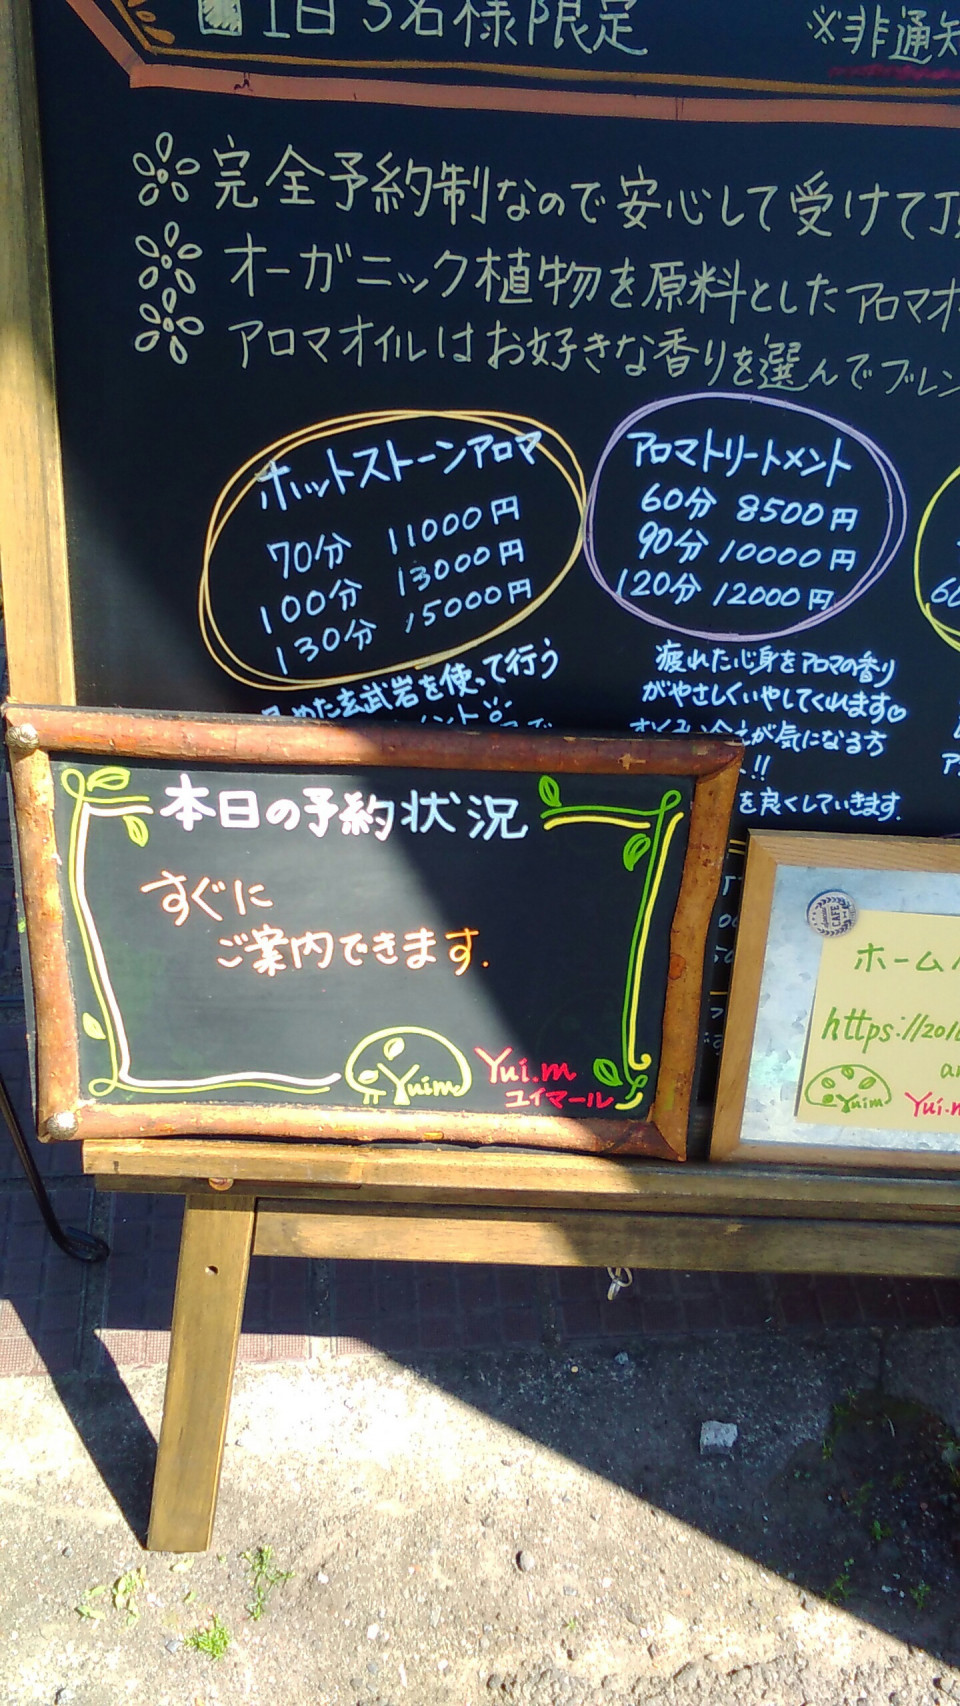 1日3名様限定
※非通知
完全予約制なので安心して受けて頂
オーガニック植物を原料としたアロマオ
アロマオイルはお好きな香りを選んでブレン
ホットストーンアロマ
70分 11000円
100分 13000円
130分 15000円
めた玄武岩を使って行う
アロマトリートメント
60分 8500円
90分 10000円
120分 12000円
疲れた心身をアロマの香り
がやさしくいやしてくれます♡
が気になる方
!!
を良くしていきます.
60
本日の予約状況
すぐに
ご案内できます.
Yuim
Yui.m
ユイマール
CAFE
ホーム
https://201
Yuim
Yui.m